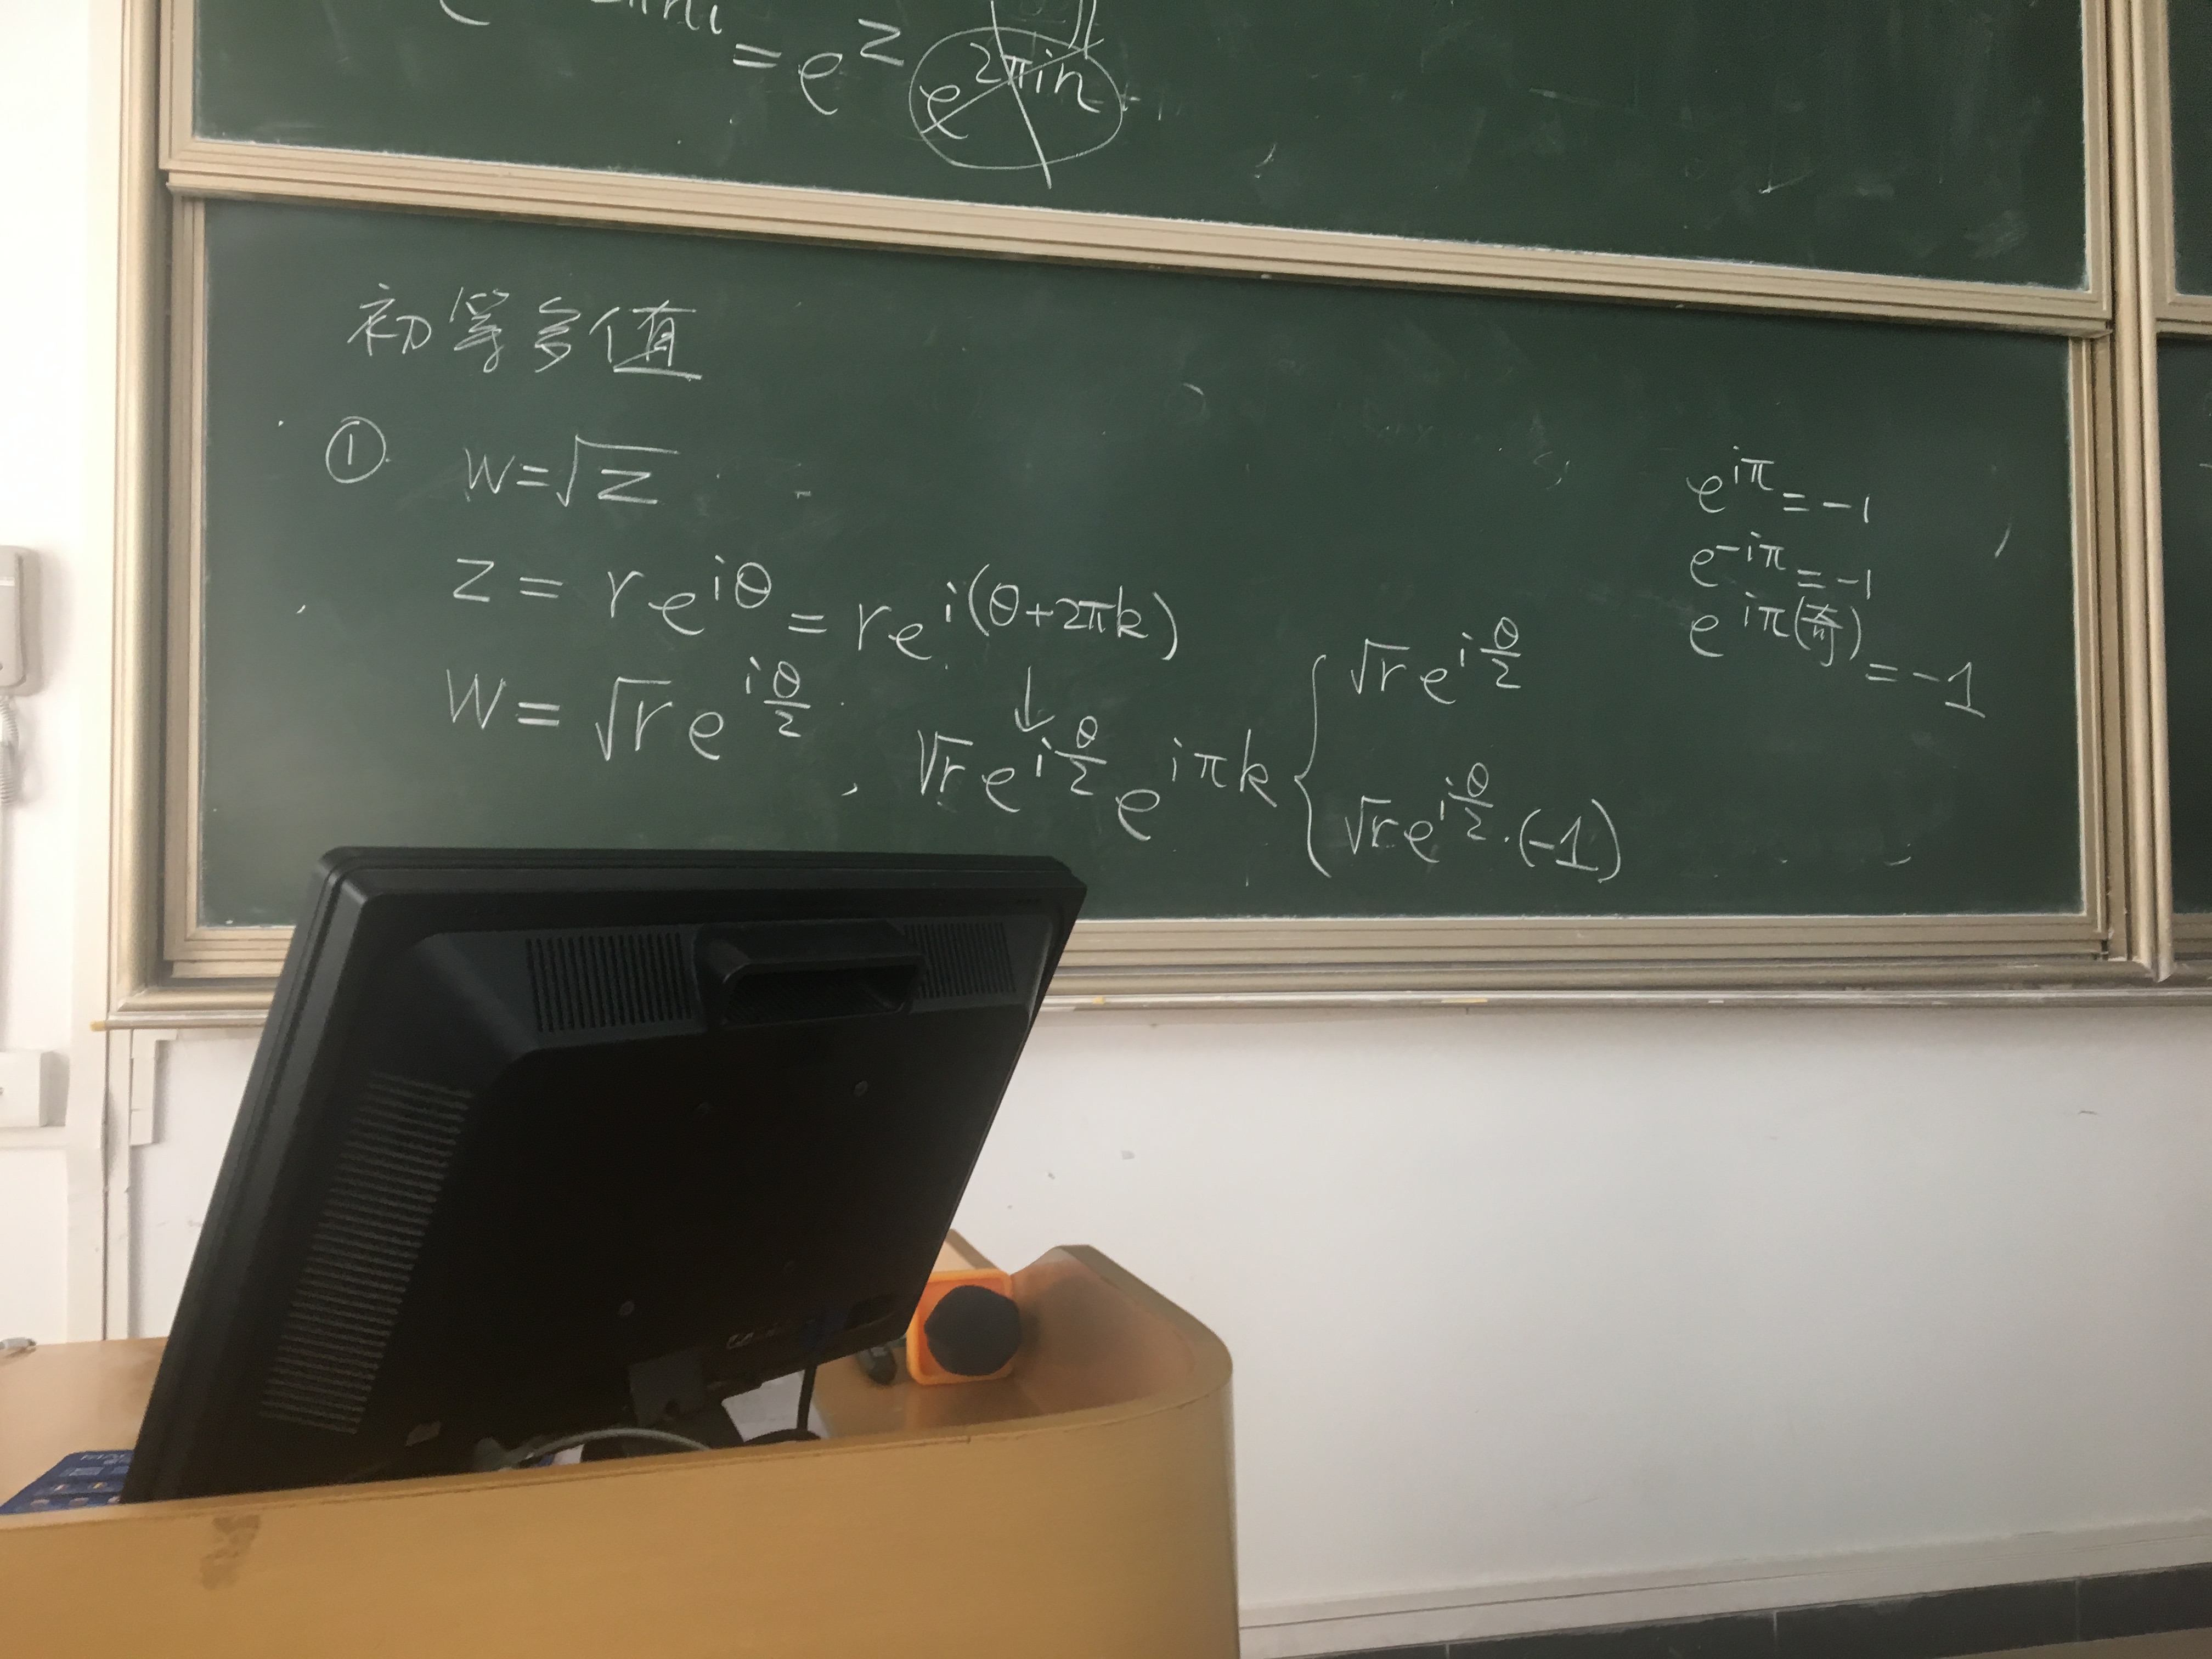 = e^z e^{2πin}
初等多值
① W=√z
z = re^{iθ} = re^{i(θ+2πk)}
W = √r e^{iθ/2}, √r e^{iθ/2} e^{iπk} { √r e^{iθ/2}
√r e^{iθ/2}·(-1)
e^{iπ} = -1
e^{-iπ} = -1
e^{iπ(奇)} = -1